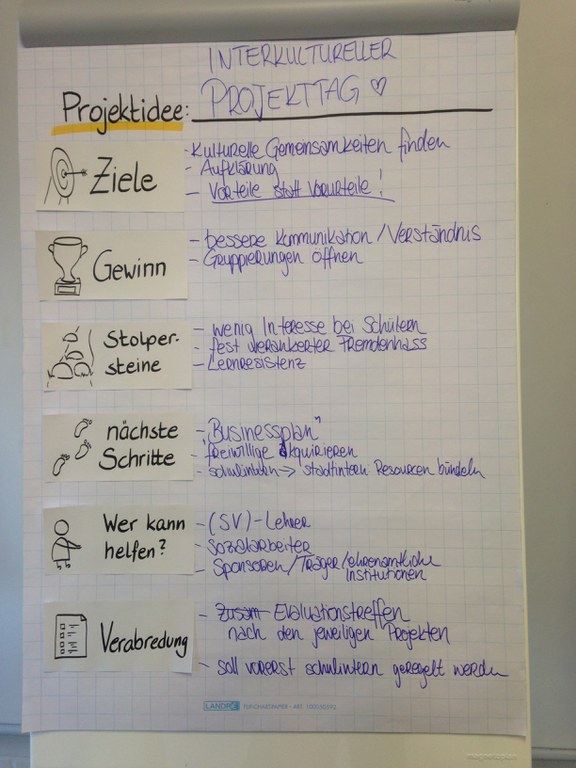 INTERKULTURELLER
Projektidee: PROJEKTTAG ♡
Ziele
- Kulturelle Gemeinsamkeiten finden
- Aufklärung
- Vorteile statt Vorurteile!
Gewinn
- bessere Kommunikation / Verständnis
- Gruppierungen öffnen
Stolper-
steine
- wenig Interesse bei Schülern
- fest verankerter Fremdenhass
- Lernresistenz
nächste
Schritte
- „Businessplan"
- freiwillige akquirieren
- schulintern → stadtintern Resourcen bündeln
Wer kann
helfen?
- (SV) - Lehrer
- Sozialarbeiter
- Sponsoren / Träger / ehrenamtliche
Institutionen
Verabredung
- Zusam Evaluationstreffen
nach den jeweiligen Projekten
- soll vorerst schulintern geregelt werden
LANDRÉ